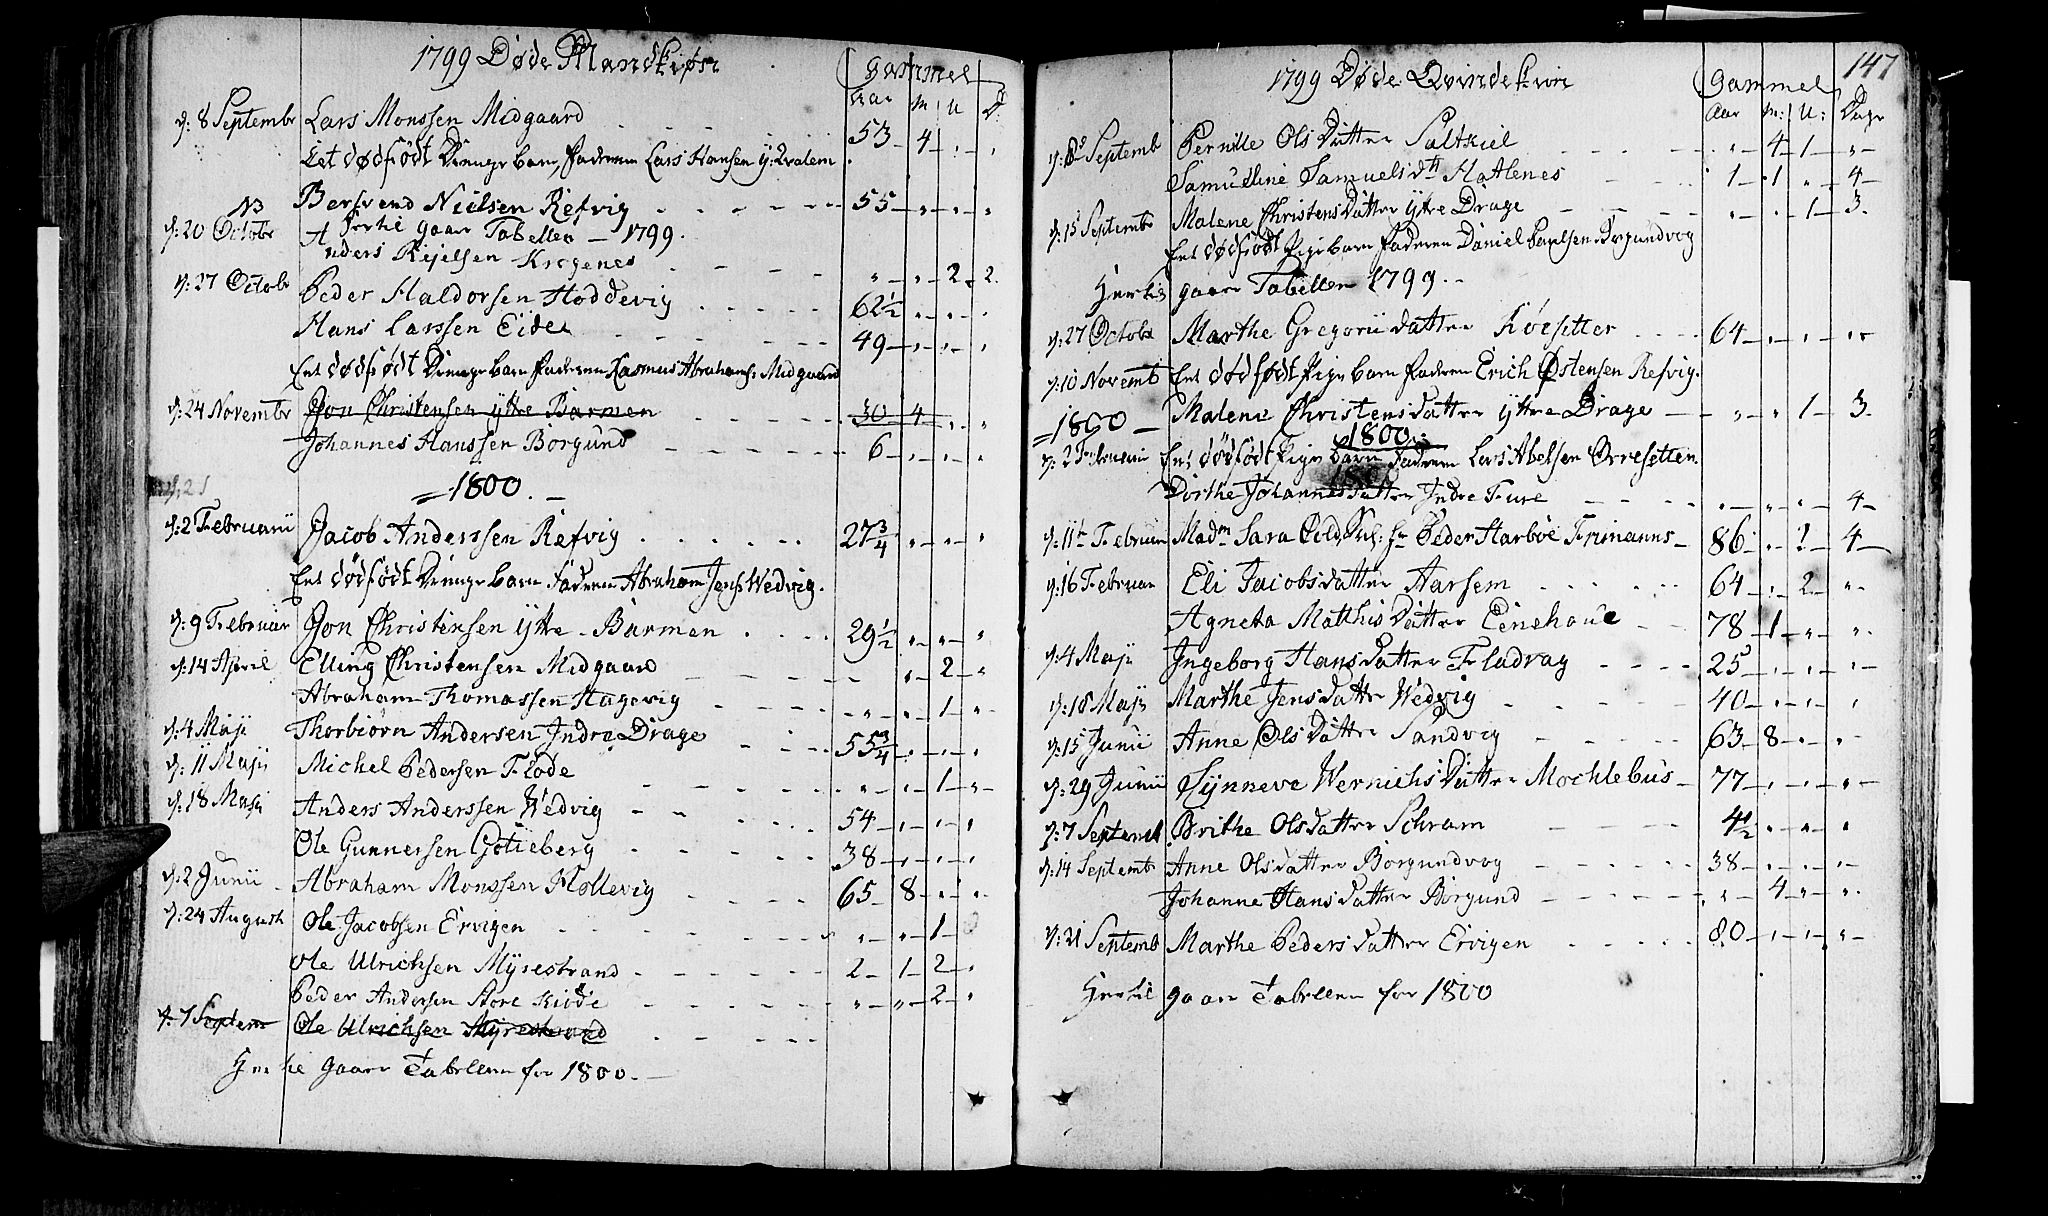 1799 Døde Mandkiøn
Gammel
Aar M U D:
d: 8 Septembr Lars Monssen Midgaard - - - 53 - 4 - " - "
Eet dødfødt Drenge barn, Faderen Lars Hansen y: Qvalem
Bersvend Nielsen Refvig - - - 55 - " - " - "
NB Hertil gaaer Tabellen - 1799.
d: 20 Octobr Anders Kielsen Krogenes - - - " - " - 2 - 2.
d: 27 Octobr Peder Haldorsen Hoddevig - - - 62½ - " - " - "
Hans Larssen Eide - - - 49 - " - " - "
Eet dødfødt Drenge barn Faderen Rasmus Abrahams: Midgaard
d: 24 Novembr Jon Christensen ÿttre Barmen - - - 30 - 4 - " - "
Johannes Hanssen Borgund - - - 6 - " - " - "
= 1800. -
d: 2 Februarii Jacob Anderssen Refvig - - - 27¾ - " - " - "
Eet dødfødt Drenge barn Faderen Abraham Jens: Wedvig.
d: 9 Februar Jon Christensen ÿttre - Barmen - - - 29½ - " - " - "
d: 14 April Elling Christensen Midgaard - - - " - 2 - "
Abraham Thomassen Hagevig - - - " - " - 1 - "
d: 4 Maji Thorbiørn Andersen Indre Drage - - - 55¾ - " - " - "
d: 11 Maji Michel Pedersen Flode - - - " - " - 1 - "
d: 18 Maji Anders Anderssen Wedvig - - - 54 - " - " - "
Ole Gunnersen Gotieberg - - - 38 - " - " - "
d: 2 Junii - Abraham Monssen Hollevig - - - 65 - 8 - " - "
d: 24 August Ole Jacobsen Ervigen - - - " - " - 1 -
Ole Ulrichsen Myrestrand - - - 2 - 1 - 2 - "
Peder Andersen Store Kiøde - - - " - " - 2 - "
d: 7 Septem Ole Ulrichsen Myrestrand - - -
Hertil gaaer Tabellen for 1800. -
147
1799 Døde Qvindekiøn
Gammel
Aar M: U: Dage
d: 8 Septemb Pernille Ols Datter Saltkiel - - - " - 4 - 1 - "
Samueline Samuelsdtr Hatlenes - - - 1 - 1 " - 4 -
d: 15 Septembr Malene Christens Datter ÿtre Drage - - - " - " - 1 - 3.
Eet dødfødt Pige barn Faderen Daniel Paulsen Borgundvog
Hertil gaaer Tabellen 1799. -
d: 27 Octobr Marthe Gregorii datter Röesetter - - - 64 - " - " - "
d: 10 Novemb Eet dødfødt Pige barn Faderen Erich Østensen Refvig.
= 1800 - Malene Christensdatter ÿttre Drage - - " - " 1 - 3.
1800.
d: 2 Februarii Eet dødfødt Pige barn Faderen Lars Abelsen Ørresetter.
Dorthe Johannesdatter Indre Fure - - - " - " - " - 4 -
d: 11t Februarii Madm Sara Hr Peder Harboe Frimanns - 86 - " - ? - 4 -
d: 16 Februar Eli Jacobsdatter Aarsem - - - 64 - " - 2 - "
Agneta Matthis Datter Eenehaue - - 78 - 1 - " - "
d: 4 Maji Ingeborg Hansdatter Fladrag - - - 25 - " - " - "
d: 18 Maji Marthe Jensdatter Wedvig - - - 40 - " - " - "
d: 15 Junii Anne Ols Datter Sandvig - - - 63 - 8 - " - "
d: 29 Junii Synneve Wernichs Datter Mochlebus - 77 - " - " - "
d: 7 Septemb Brithe Olsdatter Schram - - - 4½ - " - " - "
d: 14 Septembr Anne Olsdatter Borgundvog - - - 38 - " - " - "
Johanne Hans datter Borgund - - - " - 4 - " - "
d: 21 Septemb Marthe Peders datter Ervigen - - - 80 - " - " - "
Hertil gaaer Tabellen for 1800